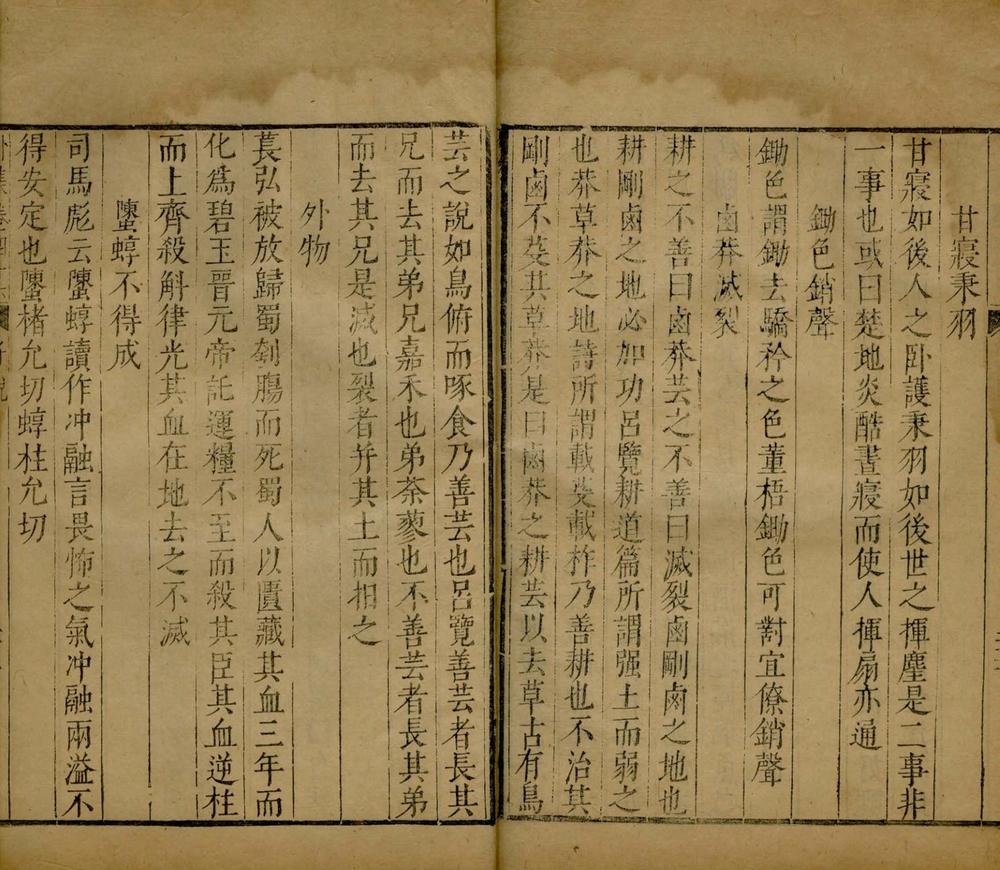 甘寢秉羽
甘寢如後人之卧護秉羽如後世之揮塵是二事非
一事也或曰楚地炎酷晝寢而使人揮扇亦通
鋤色銷聲
鋤色謂鋤去驕矜之色董梧鋤色可對宜僚銷聲
鹵莽滅裂
耕之不善曰鹵莽芸之不善曰滅裂鹵剛鹵之地也
耕剛鹵之地必加功呂覽耕道篇所謂强土而弱之
也莽草莽之地詩所謂載芟載柞乃善耕也不治其
剛鹵不芟其草莽是曰鹵莽之耕芸以去草古有鳥
芸之說如鳥俯而啄食乃善芸也呂覽善芸者長其
兄而去其弟兄嘉禾也弟荼蓼也不善芸者長其弟
而去其兄是滅也裂者并其土而相之
外物
萇弘被放歸蜀刳膓而死蜀人以匱藏其血三年而
化爲碧玉晉元帝託運糧不至而殺其臣其血逆柱
而上齊殺斛律光其血在地去之不滅
䗞蜳不得成
司馬彪云䗞蜳讀作冲融言畏怖之氣冲融兩溢不
得安定也䗞楮允切蜳柱允切